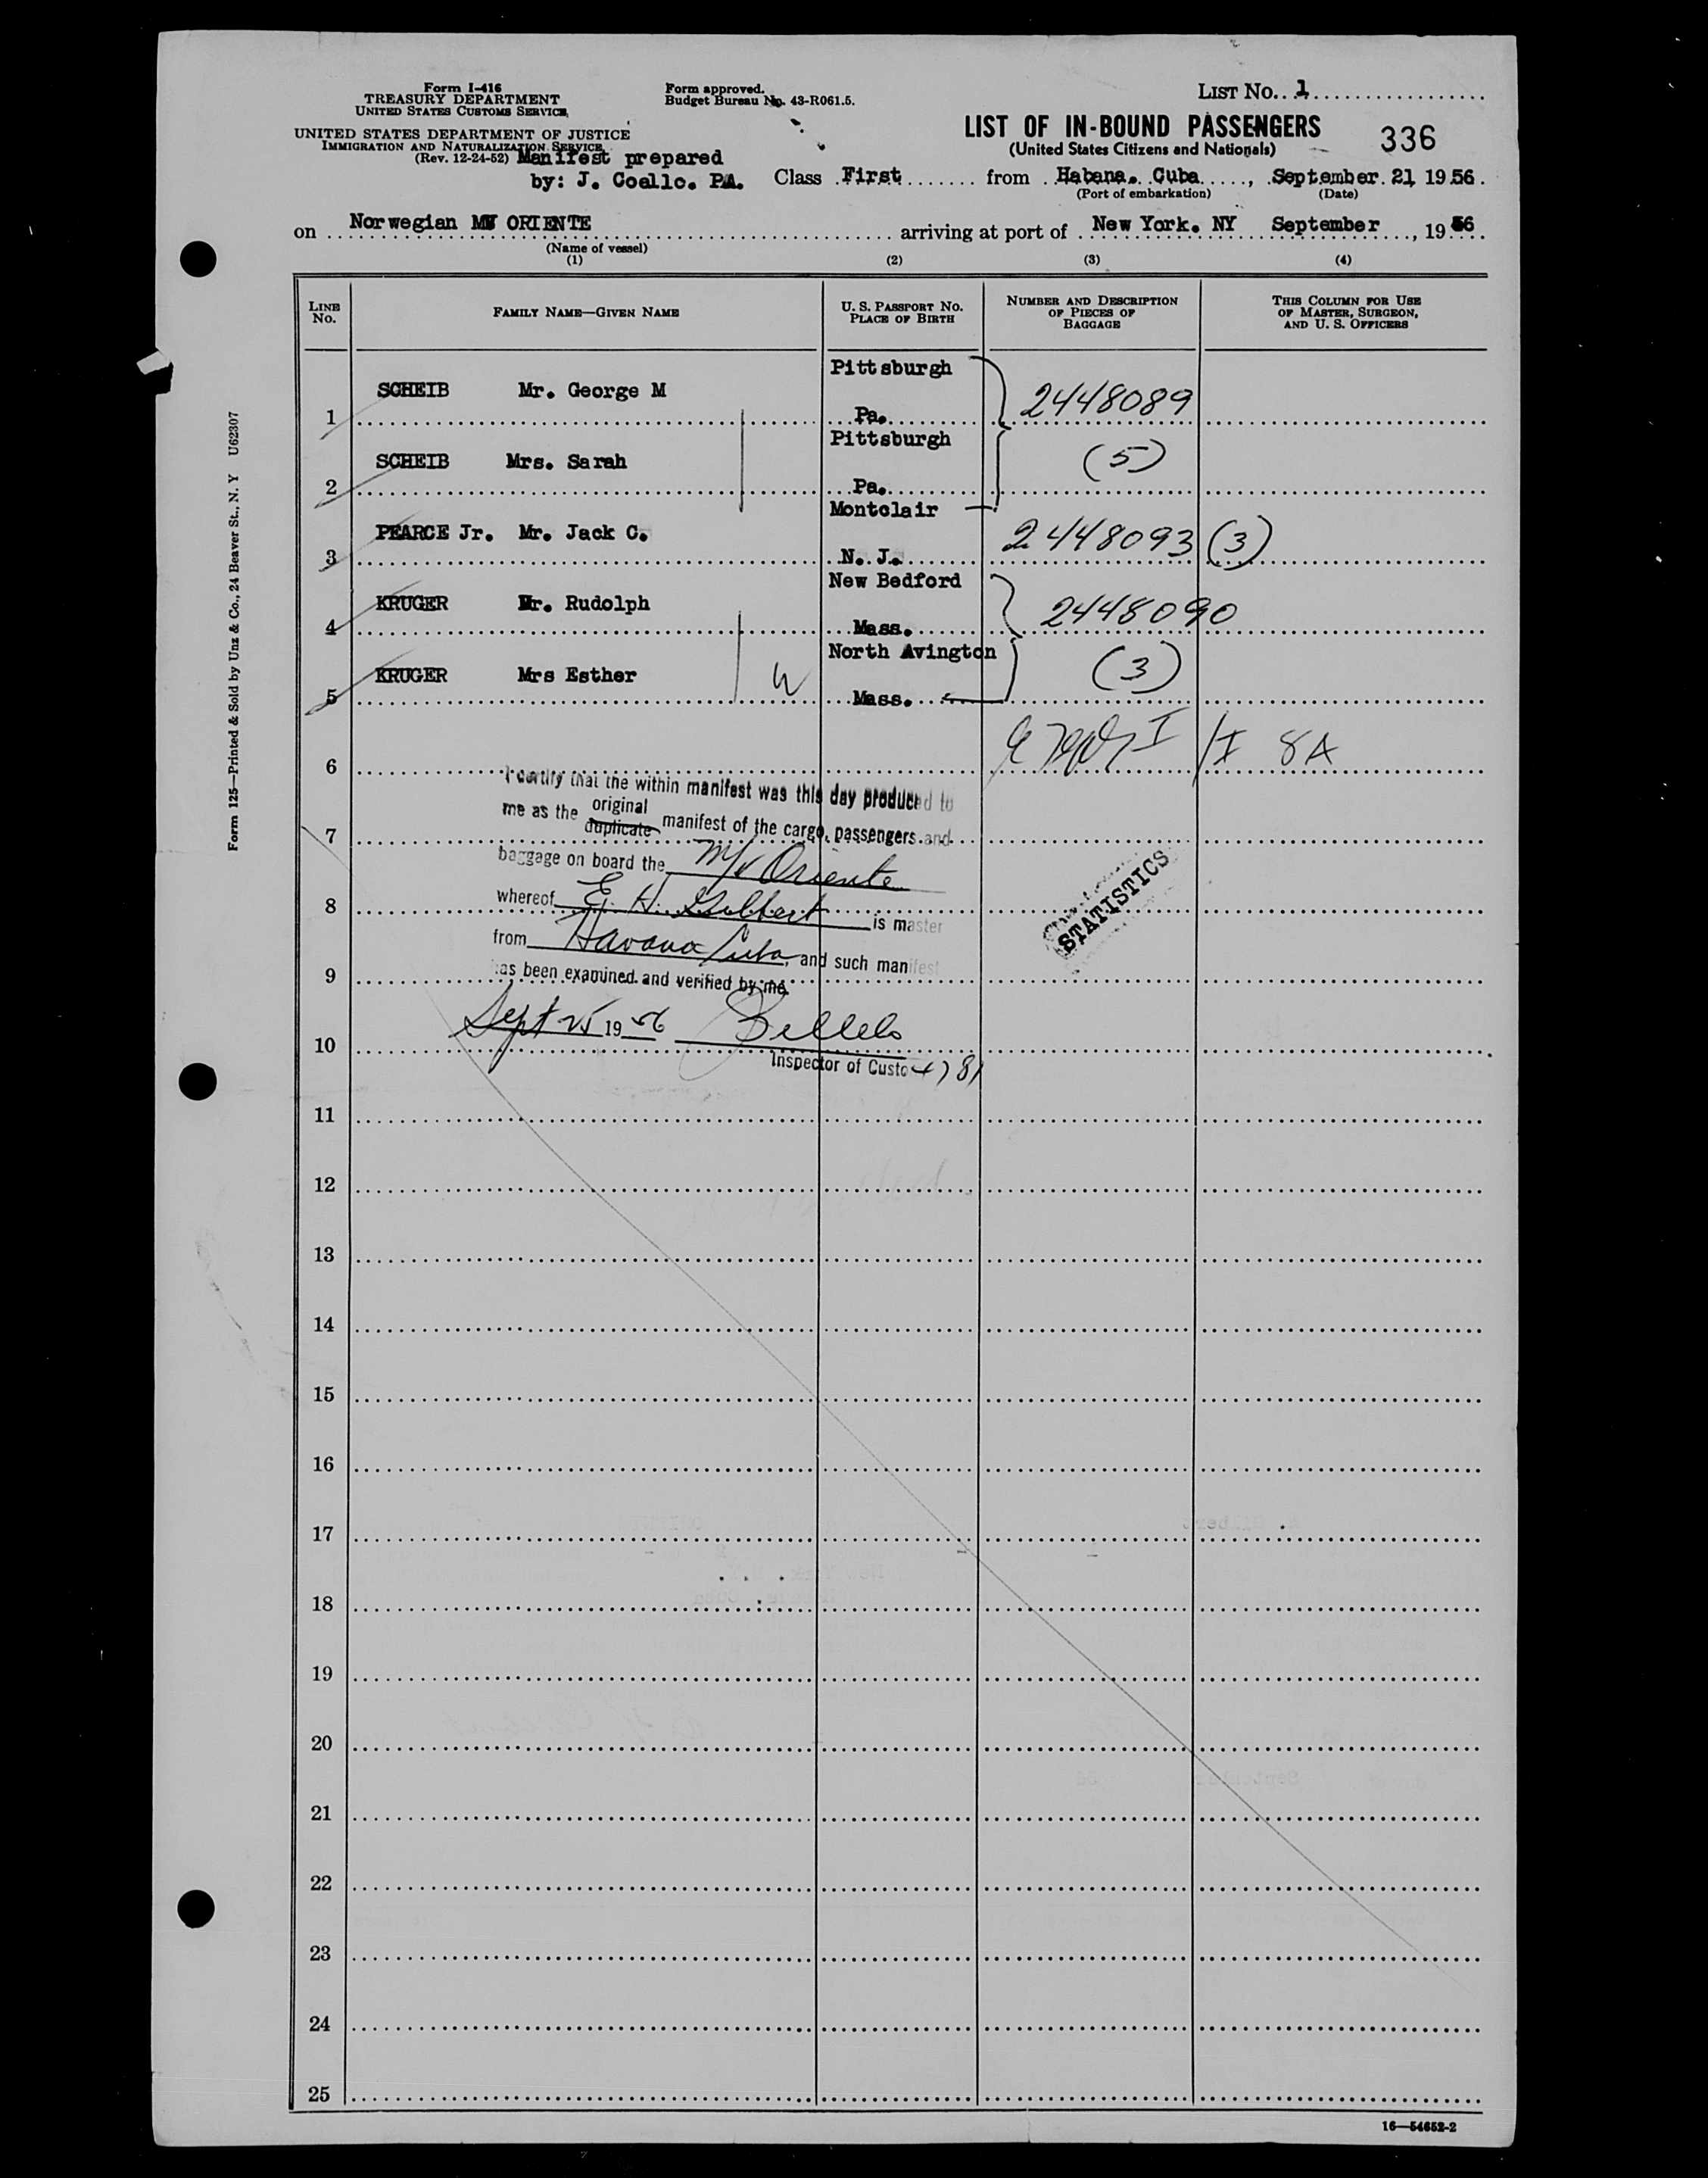 Form I-416
TREASURY DEPARTMENT
UNITED STATES CUSTOMS SERVICE
Form approved.
Budget Bureau No. 43-R061.5.
LIST NO. 1
UNITED STATES DEPARTMENT OF JUSTICE
IMMIGRATION AND NATURALIZATION SERVICE
(Rev. 12-24-52) Manifest prepared
by: J. Coello. PA.
LIST OF IN-BOUND PASSENGERS
(United States Citizens and Nationals)
336
Class First from Habana. Cuba, September 21 1956.
(Port of embarkation) (Date)
on Norwegian MV ORIENTE arriving at port of New York. NY September, 1956.
(Name of vessel)
(1) (2) (3) (4)
LINE NO.
FAMILY NAME—GIVEN NAME
U. S. PASSPORT NO.
PLACE OF BIRTH
NUMBER AND DESCRIPTION
OF PIECES OF
BAGGAGE
THIS COLUMN FOR USE
OF MASTER, SURGEON,
AND U. S. OFFICERS
1 SCHEIB Mr. George M Pittsburgh Pa. 2448089
2 SCHEIB Mrs. Sarah Pittsburgh Pa. (5)
3 PEARCE Jr. Mr. Jack C. Montclair N. J. 2448093 (3)
4 KRUGER Mr. Rudolph New Bedford Mass. 2448090
5 KRUGER Mrs Esther W North Avington Mass. (3)
6 I/I 8A
I certify that the within manifest was this day produced to
me as the original duplicate manifest of the cargo, passengers and
7
baggage on board the M/V Oriente
8 whereof E. H. Gilbert is master
STATISTICS
from Havana Cuba, and such manifest
9 has been examined and verified by me.
Sept 25 1956
10
Inspector of Custo 4781
11
12
13
14
15
16
17
18
19
20
21
22
23
24
25
16—54652-2
Form 125—Printed & Sold by Unz & Co., 24 Beaver St., N. Y U62307